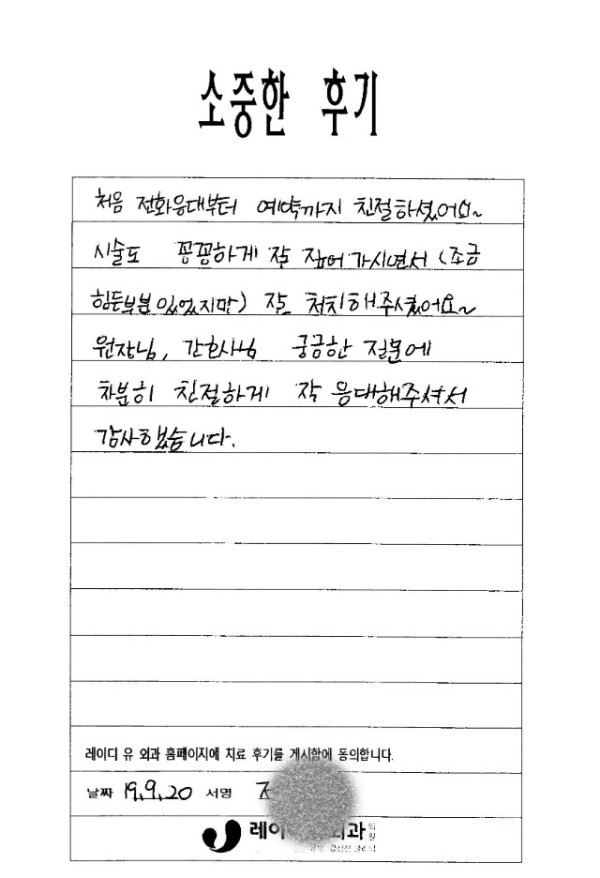 소중한 후기
처음 전화응대부터 예약까지 친절하셨어요~
시술도 꼼꼼하게 잘 잡어가시면서 (조금
힘든부분 있었지만) 잘 처치해주시했어요~
원장님, 간호사님 궁금한 질문에
차분히 친절하게 잘 응대해주셔서
감사했습니다.
레이디 유 외과 홈페이지에 치료 후기를 게시함에 동의합니다.
날짜 19.9.20 서명
레이 외과